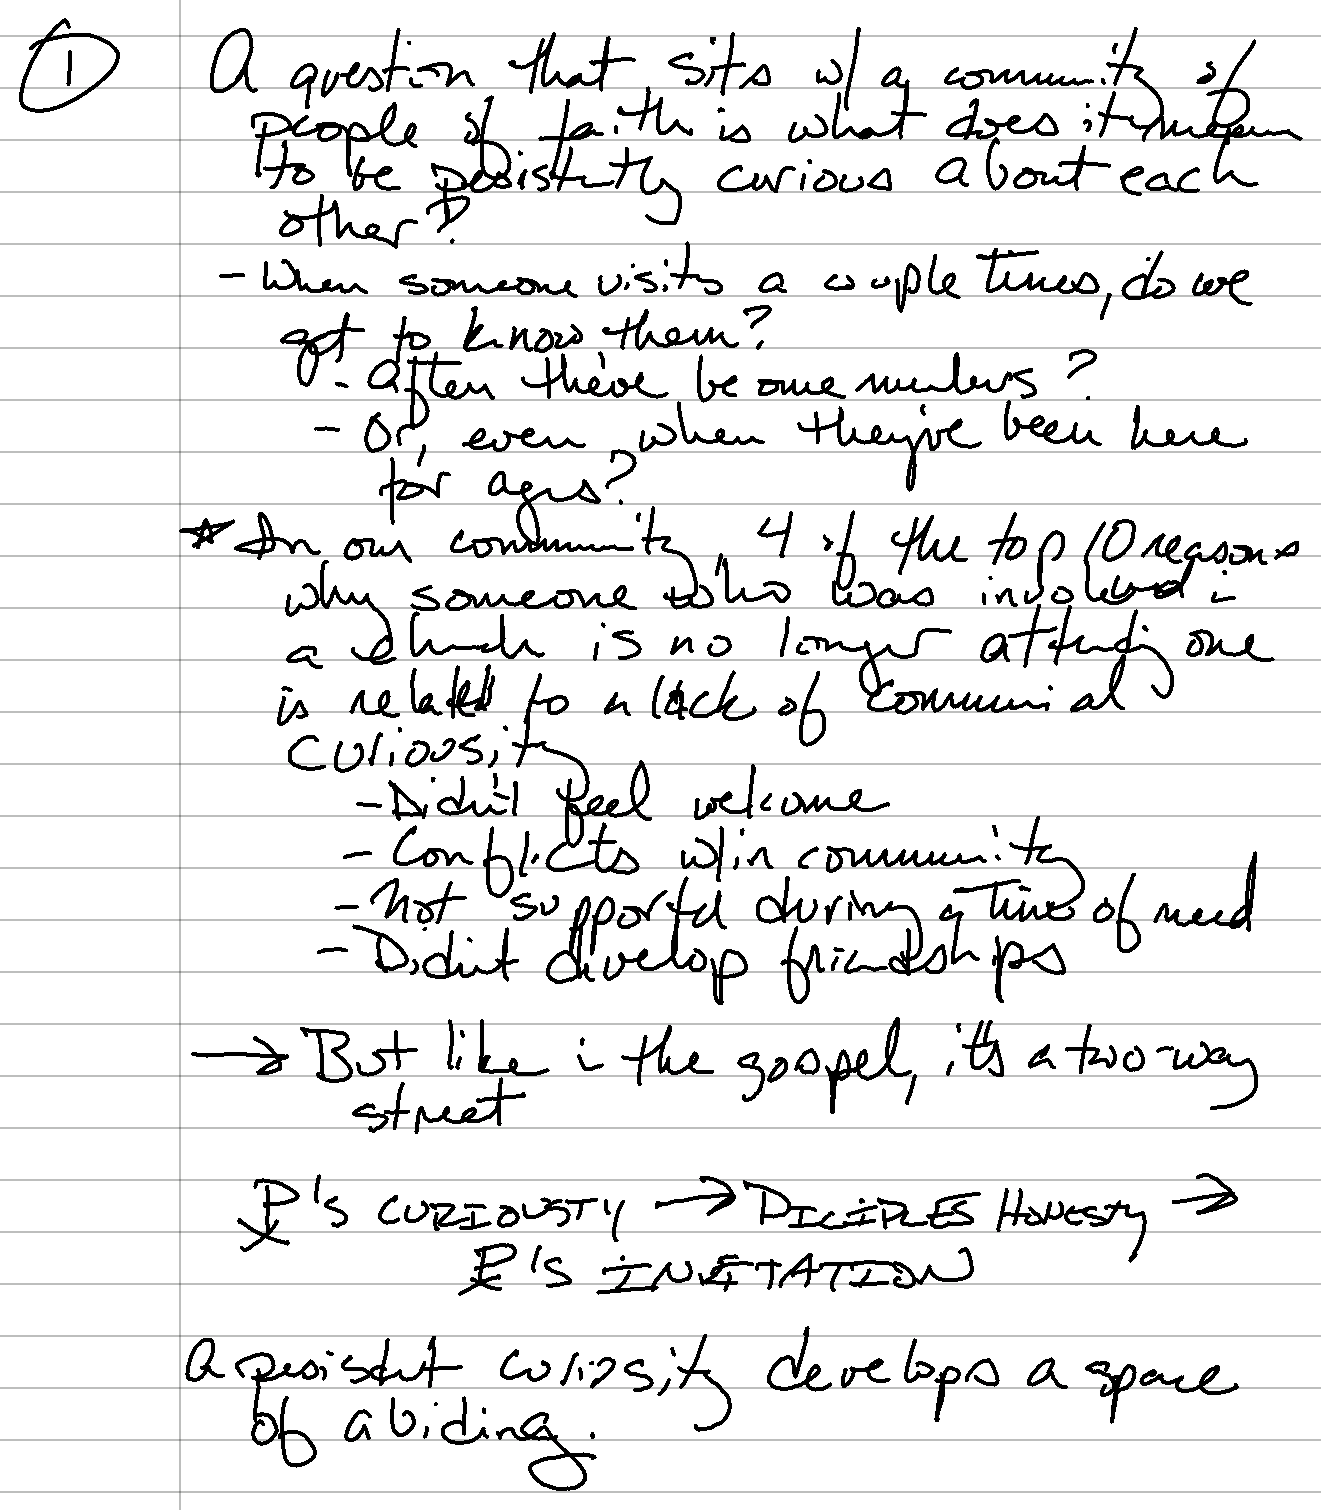 ① A question that sits w/ a community of
people of faith is what does it mean
to be persistently curious about each
other?
- When someone visits a couple times, do we
get to know them?
- After they've become members?
- Or, even when they've been here
for ages?
* In our community, 4 of the top 10 reasons
why someone who was involved in
a church is no longer attending one
is related to a lack of communial
curiosity
- Didn't feel welcome
- Conflicts w/in community
- Not supported during a time of need
- Didn't develop friendships
→ But like in the gospel, it's a two-way
street
's CURIOUSTY → DICIPLES HONESTY →
's INVITATION
A persistent curiosity develops a space
of abiding.